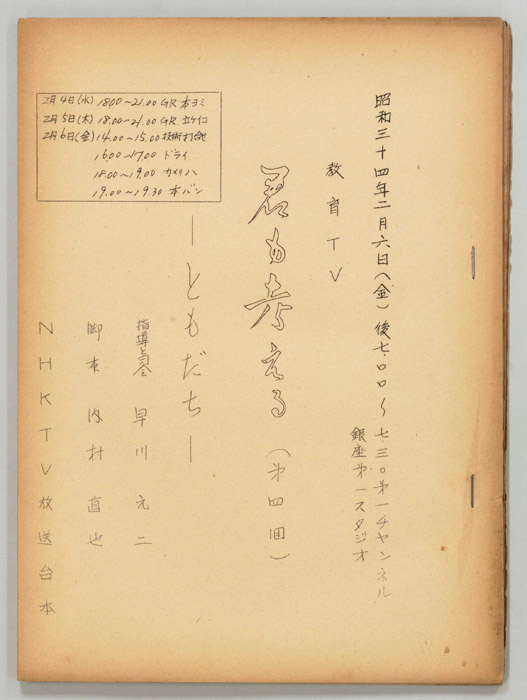 昭和三十四年二月六日(金)後七.〇〇〜七.三〇第一チャンネル
銀座第一スタジオ
教育TV
君も考える(第四回)
―ともだち―
指導と司会 早川元二
脚本 内村直也
NHKTV放送台本
2月4日(水) 18.00~21.00 GR.本ヨミ
2月5日(木) 18.00~21.00 GR.立ケイコ
2月6日(金) 14.00~15.00 技術打合せ
16.00~17.00 ドライ
18.00~19.00 カメリハ
19.00~19.30 本バン